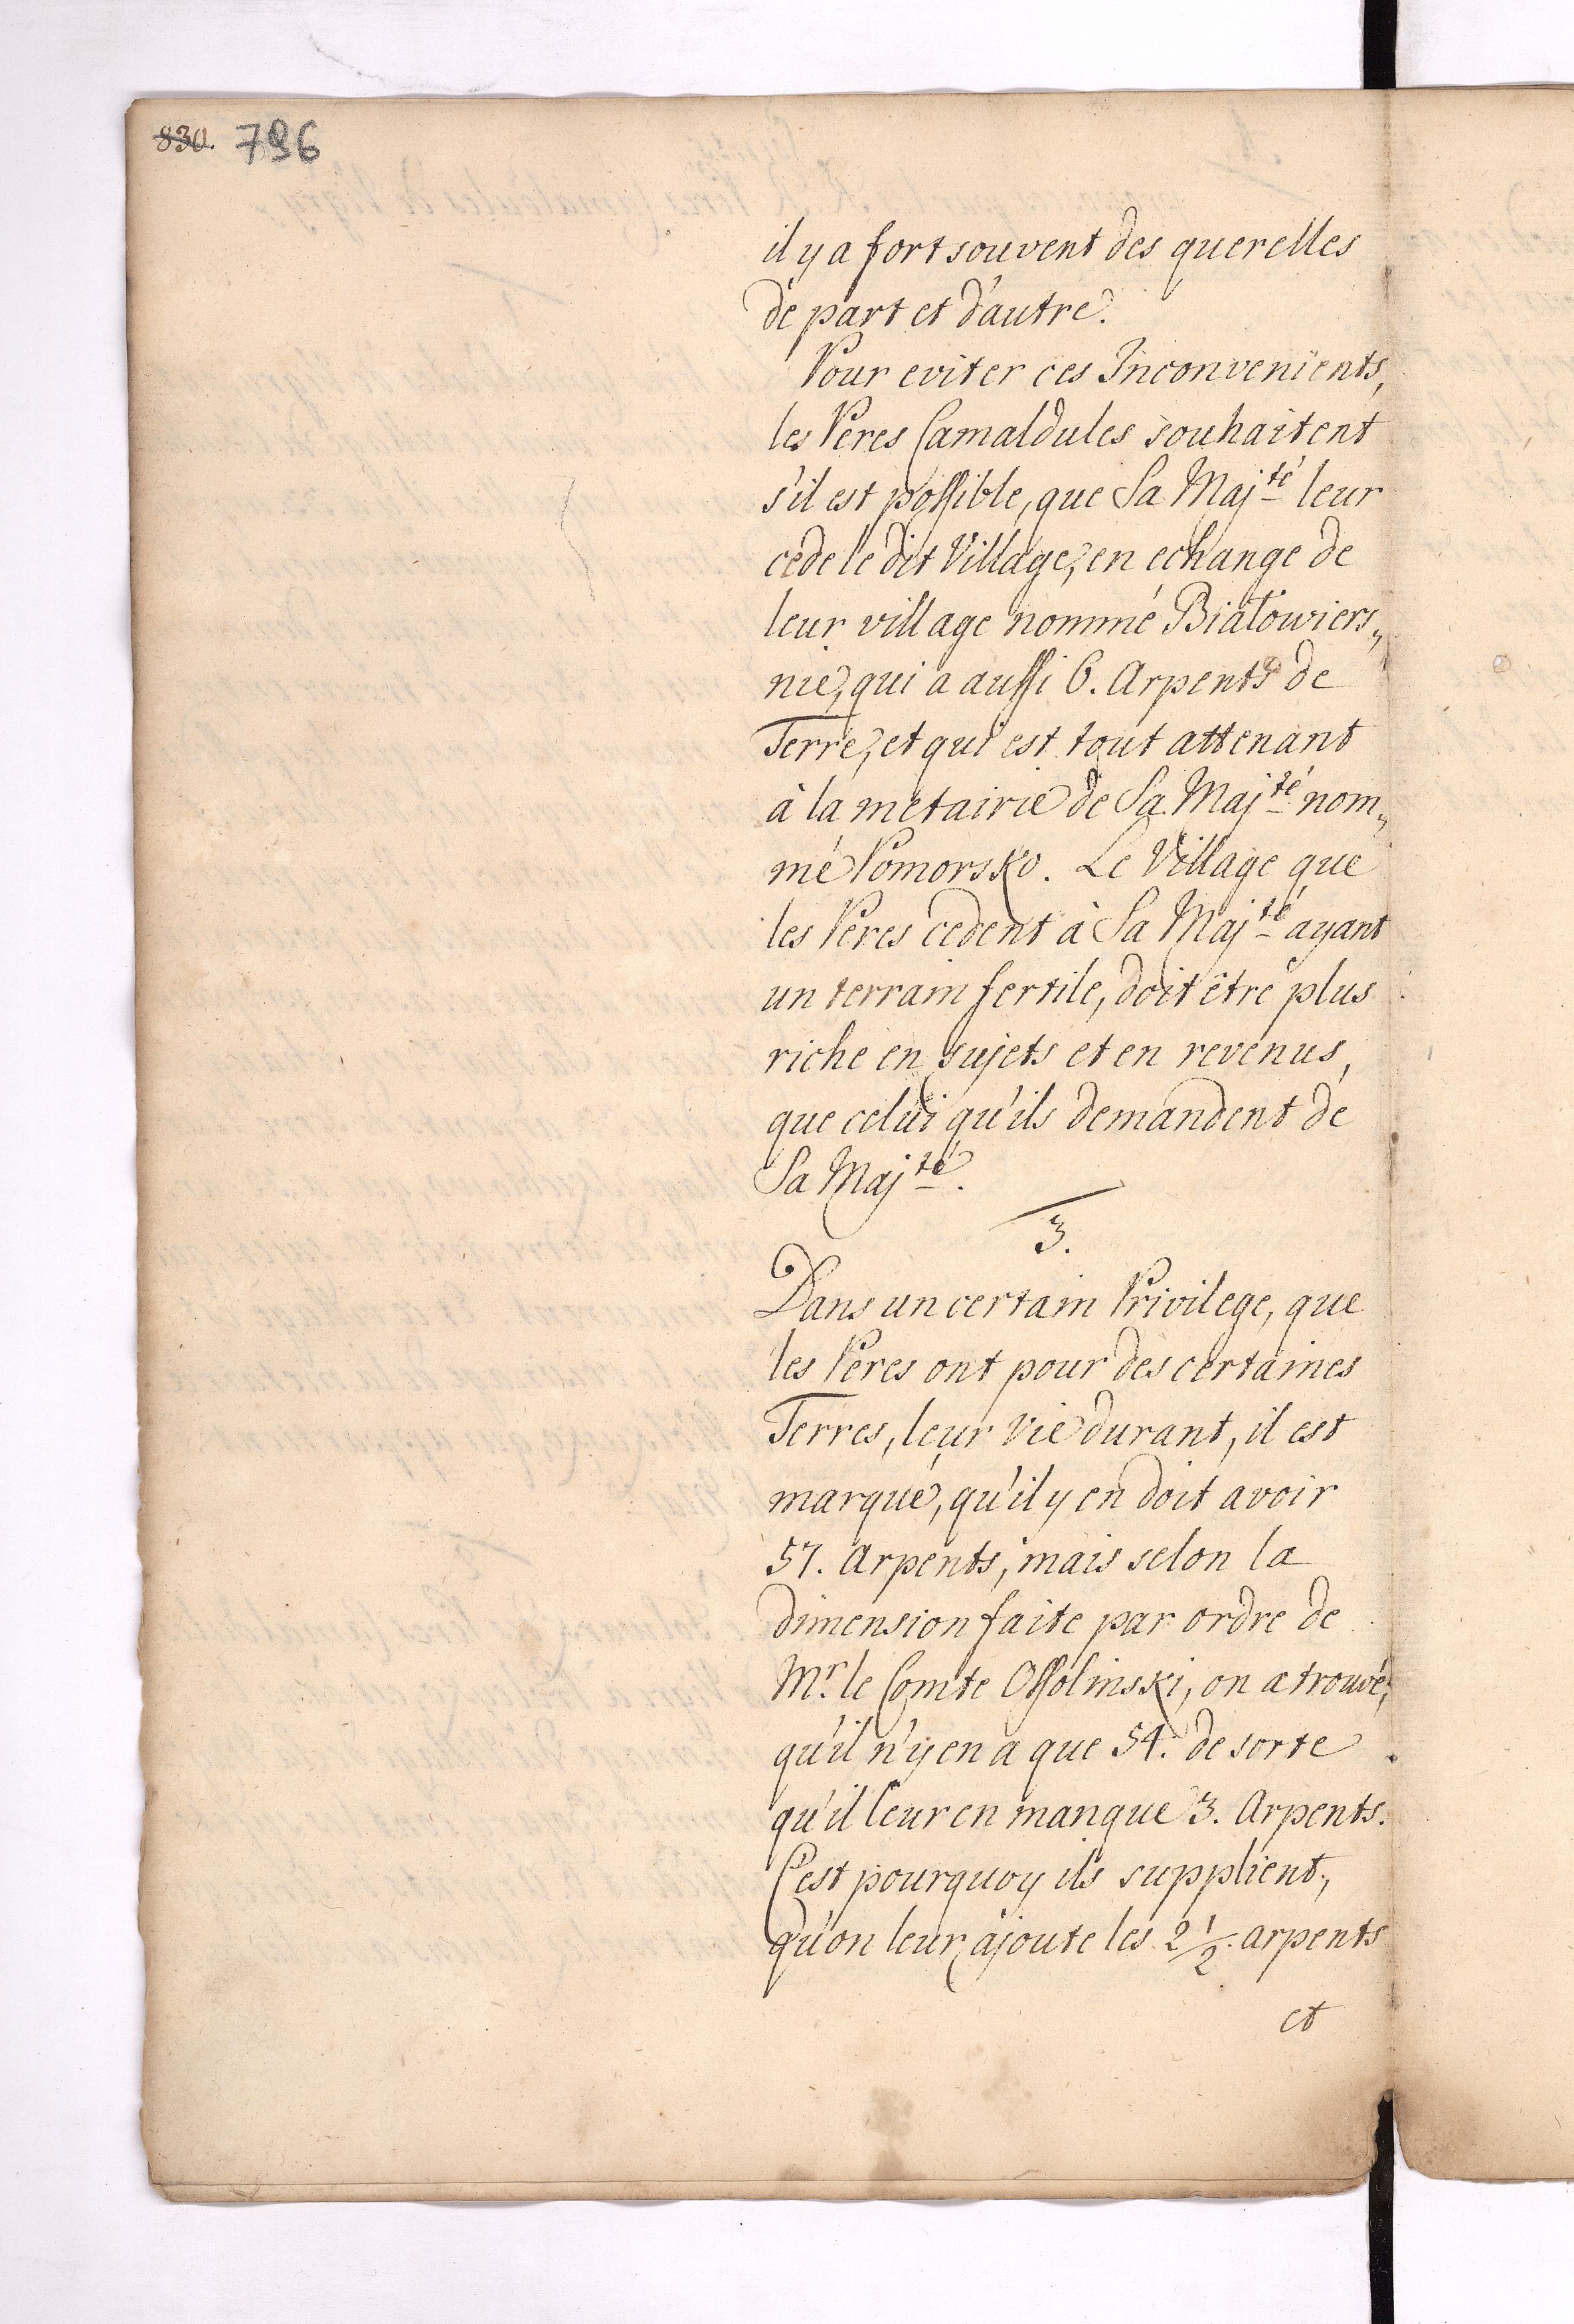 830. 796
il y a fort souvent des querelles
de part et d'autre.
Pour eviter ces Inconvenients,
les Peres Camaldules souhaitent
s'il est possible, que Sa Maj.té leur
cede le dit Village, en echange de
leur village nommé Białowiers„
nie, qui a aussi 6. Arpents de
Terre, et qui est tout attenant
à la metairie de Sa Maj.té nom„
mé Pomorsko. Le Village que
les Peres cedent à Sa Maj.té ayant
un terrain fertile, doit être plus
riche en sujets et en revenus,
que celui qu'ils demandent de
Sa Maj.té.
3.
Dans un certain Privilege, que
les Peres ont pour des certaines
Terres, leur vie durant, il est
marqué, qu'il y en doit avoir
57. Arpents, mais selon la
dimension faite par ordre de
Mr. le Comte Ossolinski, on a trouvé,
qu'il n'y en a que 54. de sorte
qu'il leur en manque 3. Arpents.
C'est pourquoy ils supplient,
qu'on leur ajoute les 2 1/2. arpents
et